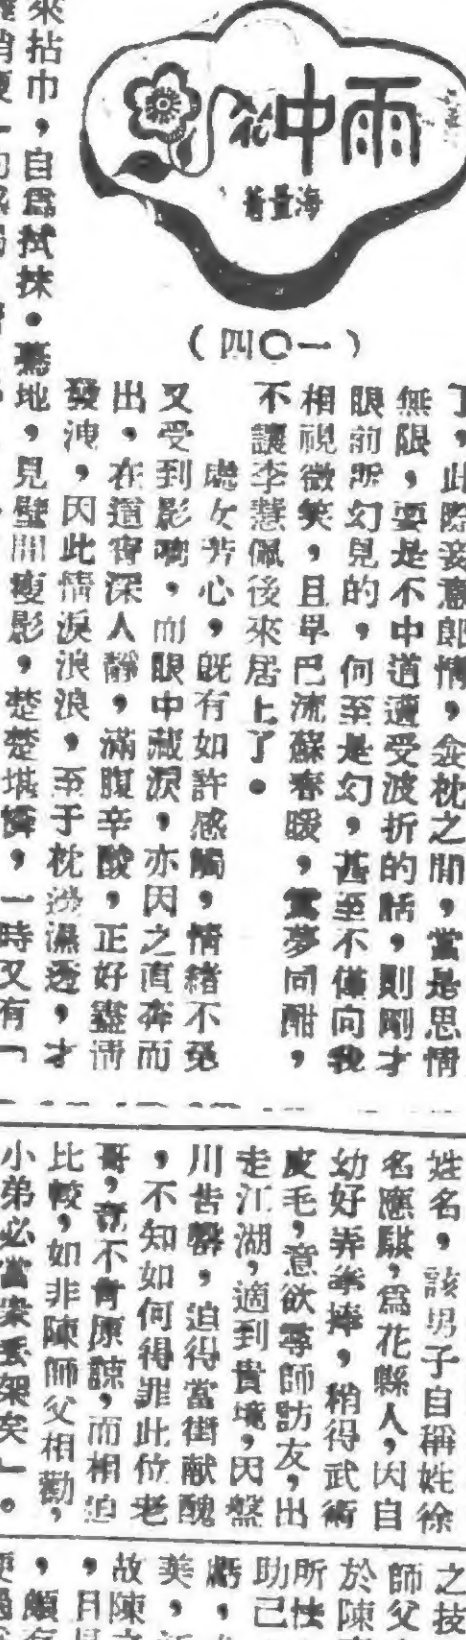 雨中花
海量著
（一〇四）
了，此際妾意郎情，衾枕之間，當是思情
無限，要是不中道遭受波折的話，則剛才
眼前所幻見的，何至是幻，甚至不僅向我
相視微笑，且早巴流蘇春暖，鴛夢同酣，
不讓李慧佩後來居上了。
處女芳心，旣有如許感觸，情緒不免
又受到影响，而眼中藏淚，亦因之直奔而
出，在這宵深人靜，滿腹辛酸，正好盡情
發洩，因此情淚浪浪，至于枕邊濕透，才
來拈巾，自爲拭抹。驀地，見壁間瘦影，楚楚堪憐，一時又有「
姓名，該男子自稱姓徐
名應騏，爲花縣人，因自
幼好弄拳棒，稍得武術
皮毛，意欲尋師訪友，出
走江湖，適到貴境，因盤
川告罄，迫得當街献醜
，不知如何得罪此位老
哥，竟不肯原諒，而相迫
比較，如非陳師父相勸，
小弟必當衆丟架矣」。
之技
師父
於陳
所怯
助己
虧，
美，
故陳
，且
，頗